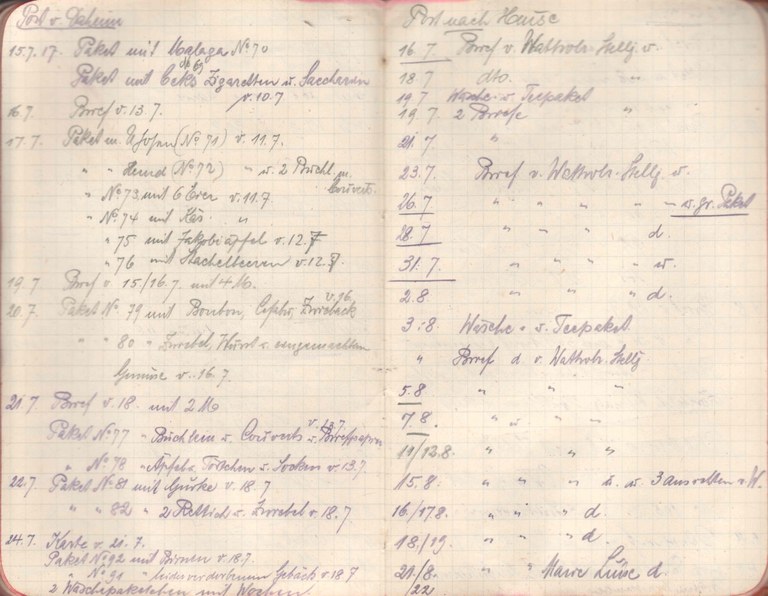 Post v. Daheim
15.7.17. Paket mit Malaga No 70
Paket mit Ceks Zigaretten u. Saccharin
v. 10.7
16.7. Brief v. 13.7.
17.7. Paket m. (No 71) v. 11.7.
" " Hemd (No 72) " u. 2 Büchl. m.
Couverts.
" No 73 mit 6 Eier v. 11.7
" No 74 mit Käs "
" 75 mit Jakobiäpfel v. 12.7
" 76 mit Stachelbeeren v. 12.7.
19.7 Brief v. 15/16.7. mit 4 M.
v. 16.
20.7. Paket No 79 mit Bonbon, Zwieback
" " 80 " Zwiebel, Wurst u. eingemachten
Gemüse v. 16.7.
21.7. Brief v. 18. mit 2 M
v. 13.7.
Paket No 77 " Büchlein u. Couverts u. Briefpapier
" No 78 " Apfel u. Socken v. 13.7.
22.7. Paket No 81 mit Gurke v. 18.7
" " 82 " 2 Rettich u. Zwiebel v. 18.7
24.7. Karte v. 21.7.
Paket No 92 mit Birnen v. 18.7.
" No 91 " leider verdorbenem Gebäck v. 18.7
2 Wäschepaketchen mit Wochen
Post nach Hause
16.7. Brief v.
18.7 dto. "
19.7 Wäsche u. Teepaket
19.7. 2 Briefe "
21.7. "
23.7. Brief v. u.
26.7 " " " " " u. gr. Paket
28.7 " " " " d.
31.7. " " " " u.
2.8 " " " " d.
3.8. Wäsche u. Teepaket
" Brief d. v.
5.8 " " "
7.8. " u " "
11/12.8. " " "
15.8. " " " d. u. 3 Ansichten v. W.
16/17.8. " " " d.
18./19. " " " d.
21/8. " " Marie Luise d.
/22